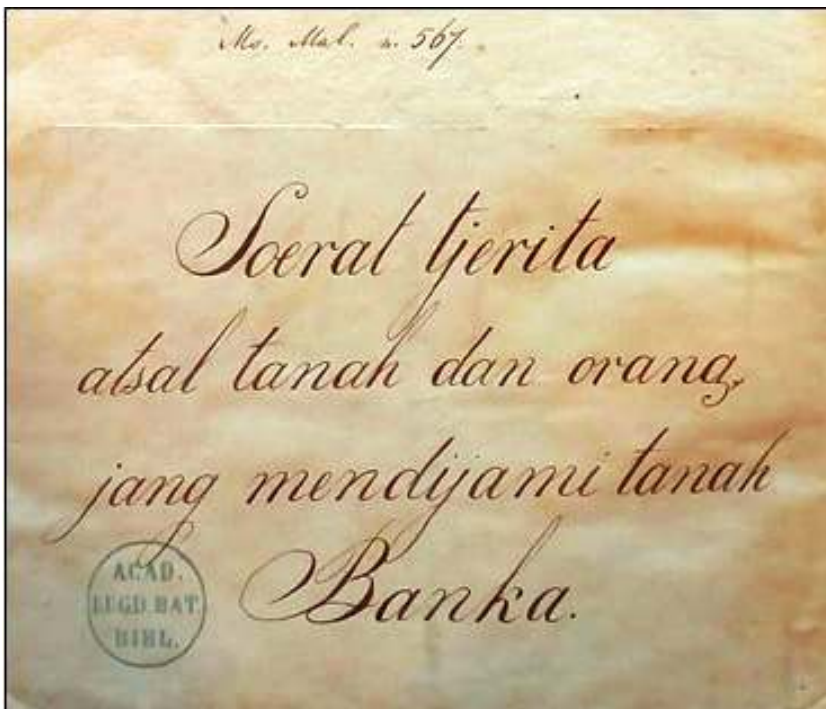 Ms. Mal. n. 567.
Soerat tjerita
atsal tanah dan orang,
jang mendijami tanah
Banka.
ACAD.
LUGD.BAT.
BIBL.